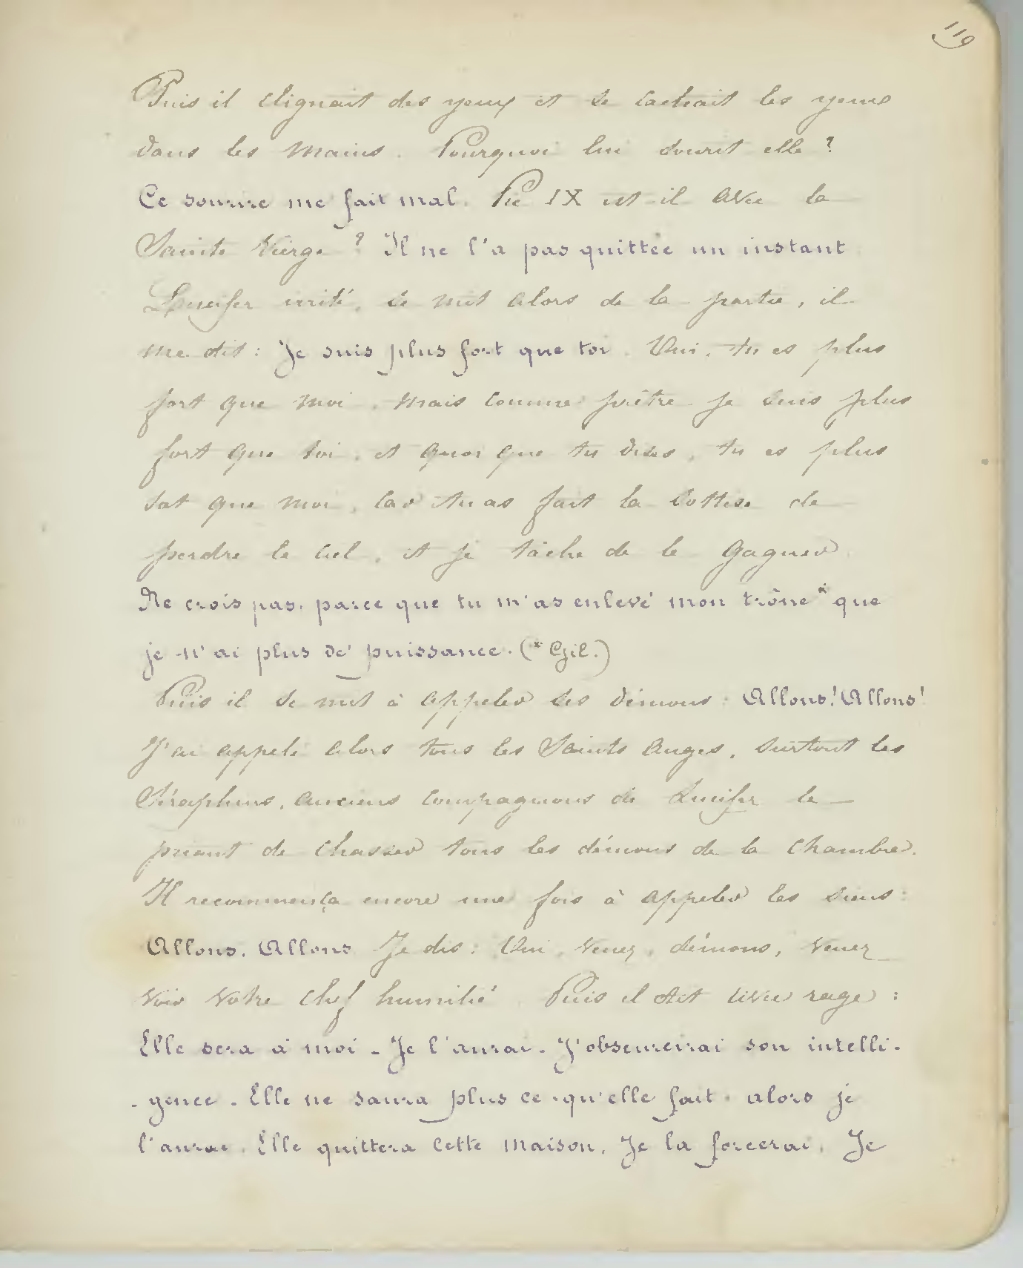 119
Puis il clignait des yeux et se cachait les yeux
dans les mains. Pourquoi lui sourit elle ?
Ce sourire me fait mal. Pie IX est-il avec la
Sainte Vierge ? Il ne l'a pas quittée un instant
Lucifer irrité, se mit alors de la partie, il
me dit : Je suis plus fort que toi. Oui, tu es plus
fort que moi, mais comme prêtre je suis plus
fort que toi, et quoi que tu dises, tu es plus
sot que moi, car tu as fait la sottise de
perdre le ciel, et je tâche de le gagner.
Ne crois pas, parce que tu m'as enlevé mon trône* que
je n'ai plus de puissance. (* Gil.)
Puis il se mit à appeler les démons : Allons! Allons!
J'ai appelé alors tous les Saints Anges, surtout les
Séraphins, anciens compagnons de Lucifer le
priant de chasser tous les démons de la chambre.
Il recommença encore une fois à appeler les siens :
Allons. Allons. Je dis : Oui, venez, démons, venez
voir votre chef humilié. Puis il dit avec rage :
Elle sera à moi - Je l'aurai - J'obscurcirai son intelli-
- gence - Elle ne saura plus ce qu'elle fait, alors je
l'aurai. Elle quittera cette maison. Je la forcerai. Je